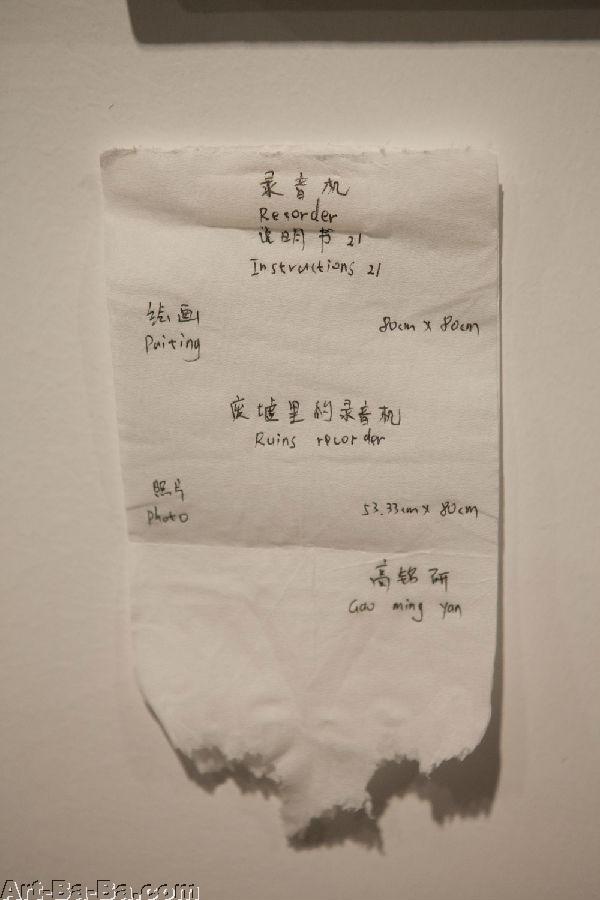 录音机
Resorder
说明书 21
Instructions 21
绘画 80cm x 80cm
Paiting
废墟里的录音机
Ruins recorder
照片
photo 53.33cm x 80cm
高铭研
Gao ming yan
Art-Ba-Ba.com